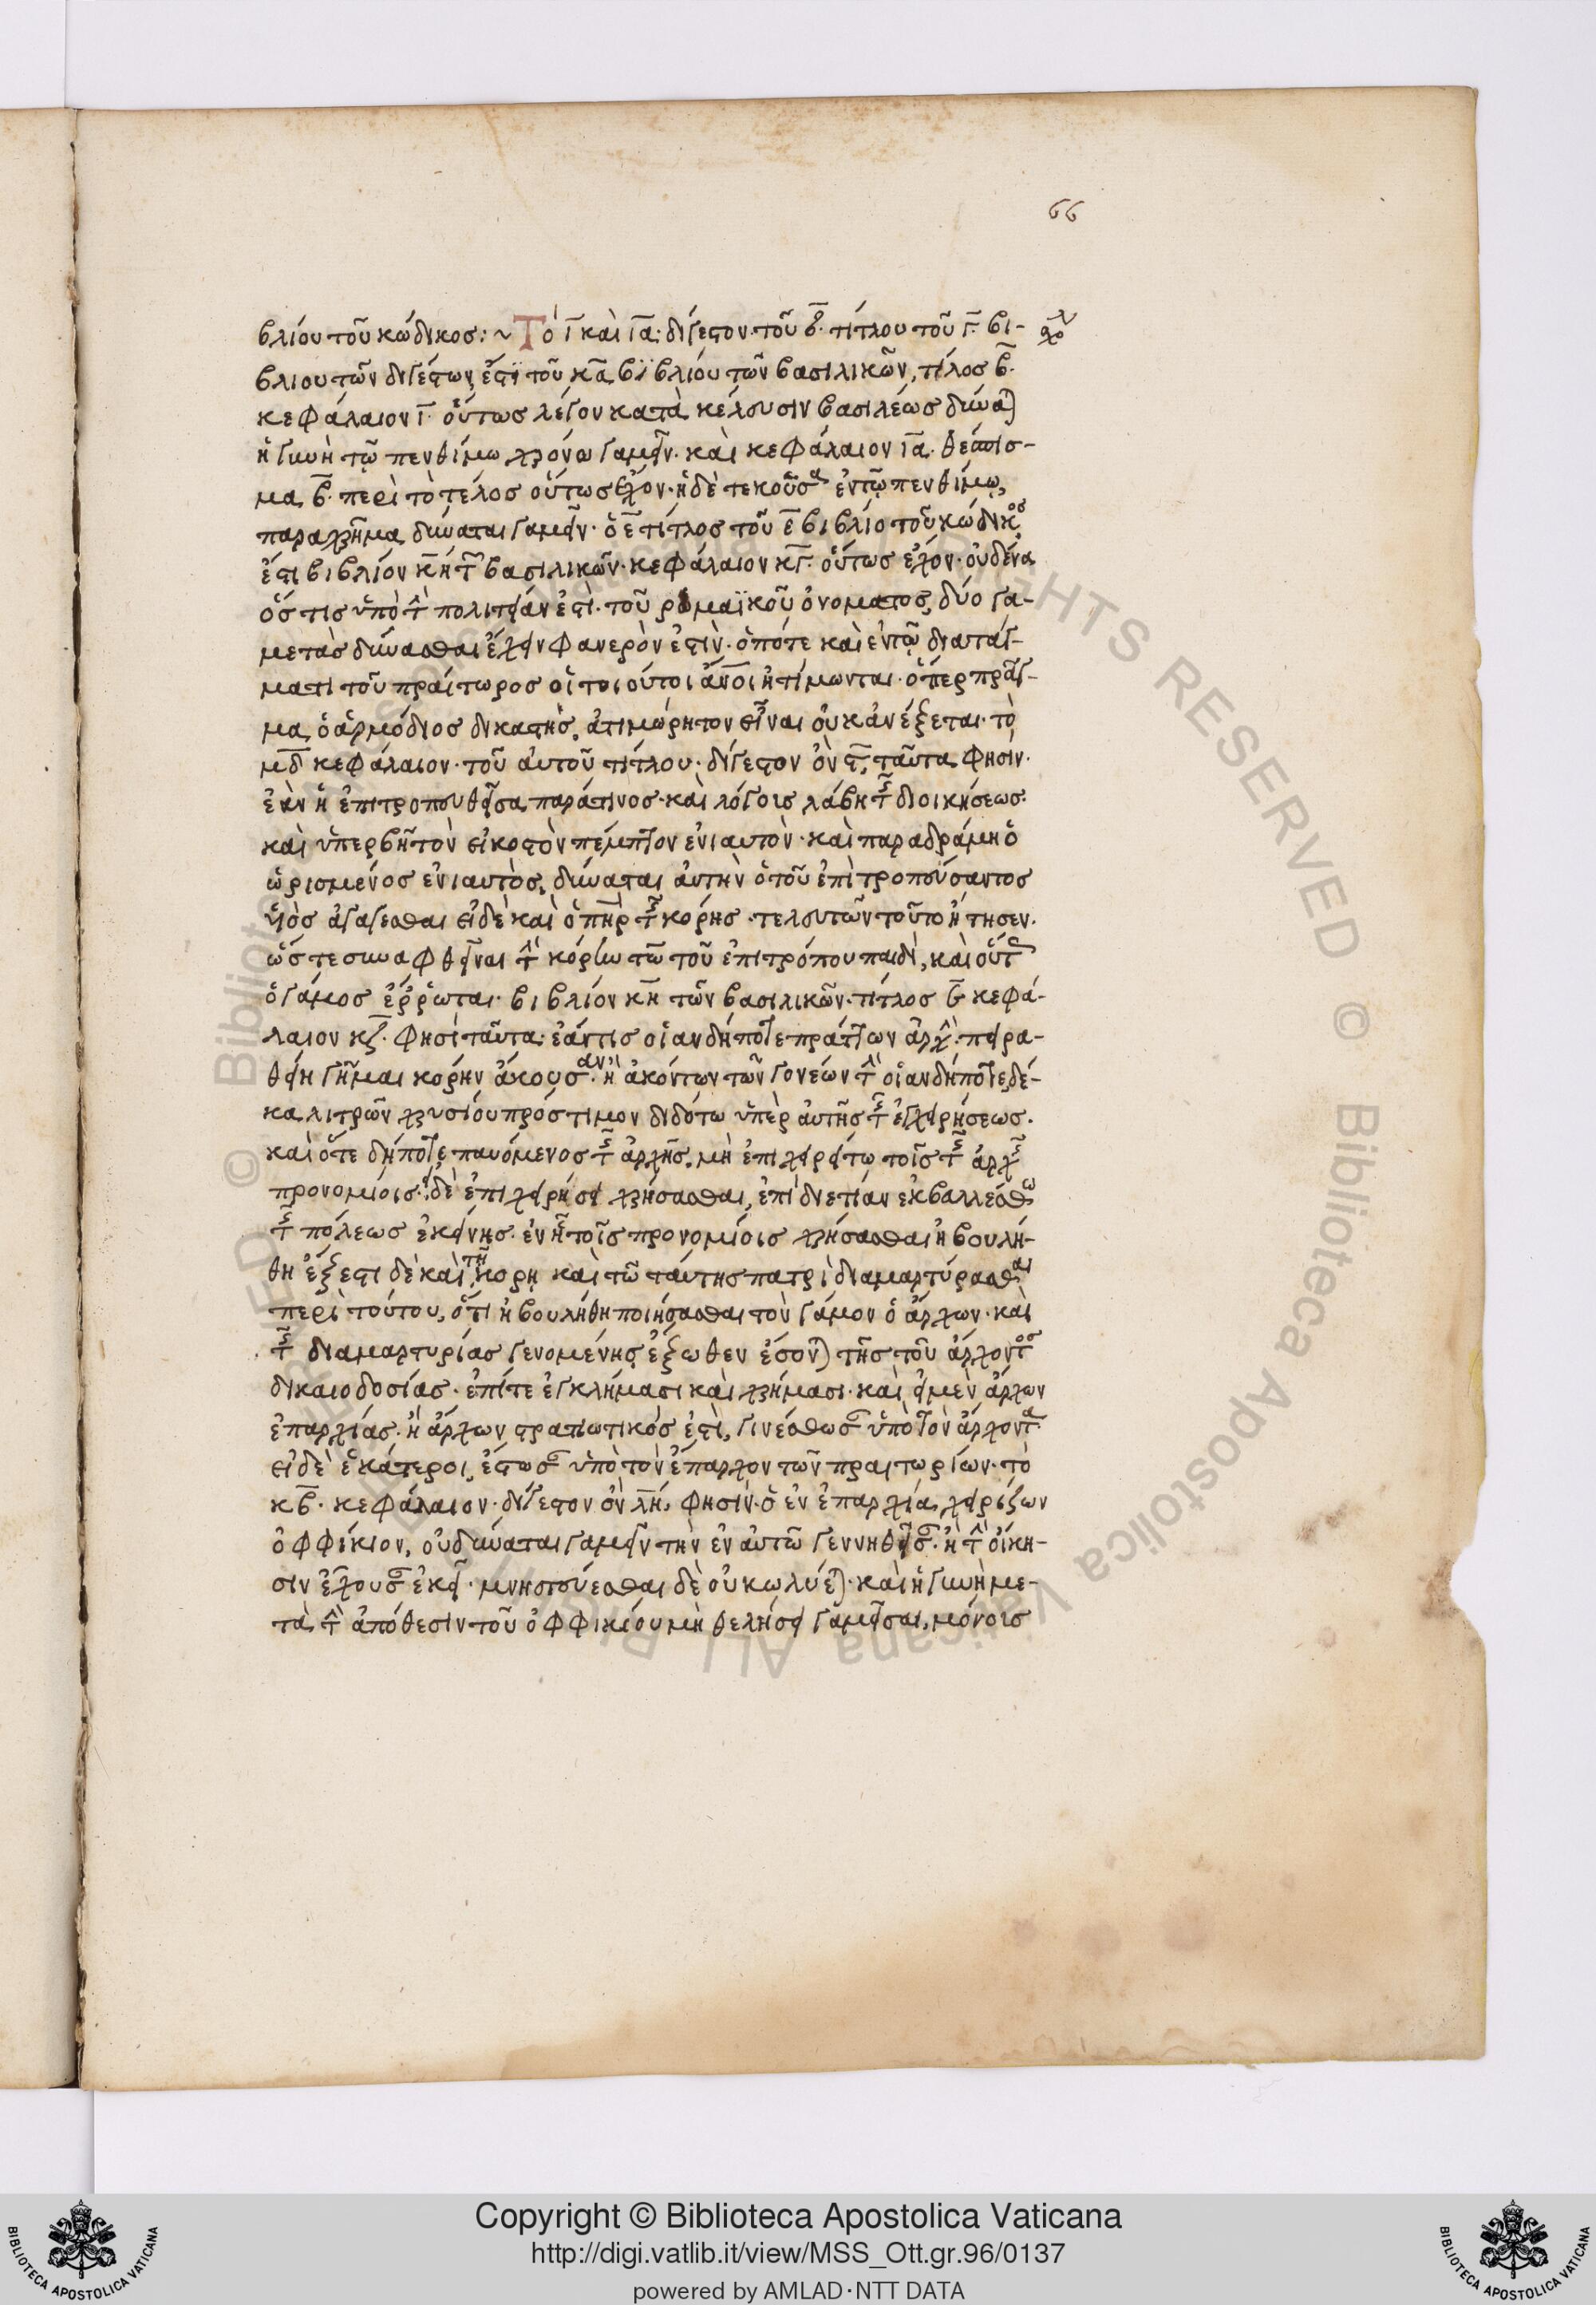 66
βλίου τοῦ κώδικος: ~ Τὸ ι̅ καὶ ι̅α̅· δίγεστον τοῦ β̅· τίτλου τοῦ γ̅· βι-
βλιου τῶν διγέστων, ἐστὶ τοῦ κ̅α̅ βιβλίου τῶν βασιλικῶν, τίτλος β̅·
κεφάλαιον ι̅· οὕτως λέγον κατὰ κέλευσιν βασιλέως δύναται
ἡ γυνὴ τῷ πενθίμω χρόνω γαμεῖν· καὶ κεφάλαιον ι̅α̅· θέσπισ-
μα β̅· περὶ τὸ τέλος οὕτως ἔχον· ἡ δὲ τεκοῦσα ἐν τῷ πενθίμῳ,
παραχρῆμα δύναται γαμεῖν· ὁ ε̅ τίτλος τοῦ ε̅ βιβλίο τοῦ κώδικος
ἐστὶ βιβλίον κ̅η̅ τῶν βασιλικῶν· κεφάλαιον κ̅γ̅· οὕτως ἔχον· οὐδένα
ὅστις ὑπὸ τὴν πολιτείαν ἐστὶ· τοῦ ρωμαϊκοῦ ὀνόματος, δύο γα-
μετὰς δύνασθαι ἔχειν φανερὸν ἐστὶν· ὁπότε καὶ ἐν τῷ διατάγ-
ματι τοῦ πραίτωρος οἱ τοιούτοι ἄν̅οι ἠτίμωνται· ὅπερ πρᾶγ-
μα, ὁ ἁρμόδιος δικαστὴς, ἀτιμώρητον εἶναι οὐκ ἀνέξεται· τὸ
μ̅δ̅ κεφάλαιον· τοῦ αὐτοῦ τίτλου· δίγεστον ὂν ϛ̅, ταῦτα φησὶν·
ἐὰν ἡ ἐπιτροπευθεῖσα παρά τινος· καὶ λόγοις λάβῃ τῆς διοικήσεως·
καὶ ὑπερβῇ τὸν εἰκοστὸν πέμπτον ἐνιαυτὸν· καὶ παραδράμῃ ὁ
ὡρισμένος ἐνιαυτὸς, δύναται αὐτὴν ὁ τοῦ ἐπιτροπεύσαντος
υἱὸς ἀγαγέσθαι εἰ δὲ καὶ ὁ π̅η̅ρ τῆς κόρης· τελευτῶν τοῦτο ᾔτησεν·
ὥστε συναφθῆναι τὴν κόρην τῶ τοῦ ἐπιτρόπου παιδὶ, καὶ οὕτως
ὁ γάμος ἔρρωται· βιβλίον κ̅η̅ τῶν βασιλικῶν· τίτλος γ̅ κεφά-
λαιον κ̅ζ̅· φησὶ ταῦτα· ἐάν τις οἱανδήποτε πράττων ἀρχὴν· πειρα-
θείη γῆμαι κόρην ἄκουσαν· ἢ ἀκόντων τῶν γονέων τὴν οἱανδήποτε, δέ-
κα λιτρῶν χρυσίου πρόστιμον διδότω ὑπὲρ αὐτῆς τῆς ἐγχειρήσεως·
καὶ ὅτε δήποτε παυόμενος τῆς ἀρχῆς, μὴ ἐπιχειρείτω τοῖς τῆς ἀρχῆς
προνομίοις· εἰ δὲ ἐπιχειρήσει χρήσασθαι, ἐπὶ διετίαν ἐκβαλλέσθω
τῆς πόλεως ἐκείνης· ἐν ᾗ τοῖς προνομίοις χρήσασθαι ἠβουλή-
θη ἔξεστι δὲ καὶ τῇ κόρῃ καὶ τῶ ταύτης πατρὶ διαμαρτύρασθαι
περὶ τούτου, ὅτι ἠβουλήθη ποιήσασθαι τὸν γάμον ὁ ἄρχων· καὶ
τῆς διαμαρτυρίας γενομένης, ἔξωθεν ἔσονται τῆς τοῦ ἄρχοντος
δικαιοδοσίας· ἐπί τε ἐγκλήμασι καὶ χρήμασι· καὶ εἰ μὲν ἄρχων
ἐπαρχίας· ἢ ἄρχων στρατιωτικός ἐστὶ, γινέσθωσαν ὑπὸ τὸν ἄρχοντα
εἰ δὲ ἑκάτεροι, ἔστωσαν ὑπὸ τὸν ἔπαρχον τῶν πραιτωρίων· τὸ
κ̅β̅· κεφάλαιον· δίγεστον ὂν λ̅η̅· φησὶν· ὁ ἐν ἐπαρχία χειρίζων
ὀφφίκιον, οὐ δύναται γαμεῖν τὴν ἐν αὐτῶ γεννηθεῖσαν· ἢ τὴν οἴκη-
σιν ἔχουσαν ἐκεῖ· μνηστεύεσθαι δὲ οὐ κωλύεται· καὶ ἡ γυνὴ με-
τὰ τὴν ἀπόθεσιν τοῦ ὀφφικίου μὴ θελήσει γαμεῖσαι, μόνοις
© Biblioteca Apostolica Vaticana ALL RIGHTS RESERVED
Copyright © Biblioteca Apostolica Vaticana
http://digi.vatlib.it/view/MSS_Ott.gr.96/0137
powered by AMLAD·NTT DATA
BIBLIOTECA APOSTOLICA VATICANA
BIBLIOTECA APOSTOLICA VATICANA